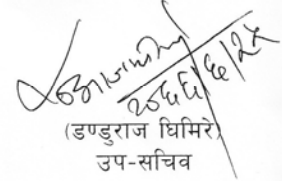 २०६६/६/२५
(डण्डुराज घिमिरे)
उप-सचिव